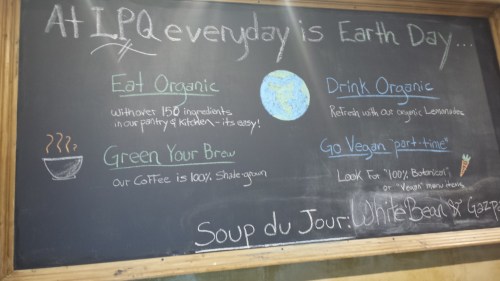 At LPQ everyday is Earth Day...
Eat Organic
With over 150 ingredients
in our pantry & kitchen - its easy!
Green Your Brew
our Coffee is 100% Shade grown
Drink Organic
Refresh with our organic Lemonades
Go Vegan "part-time"
Look For "100% Botanical",
or "Vegan" menu items
Soup du Jour: White Bean & Gazpa